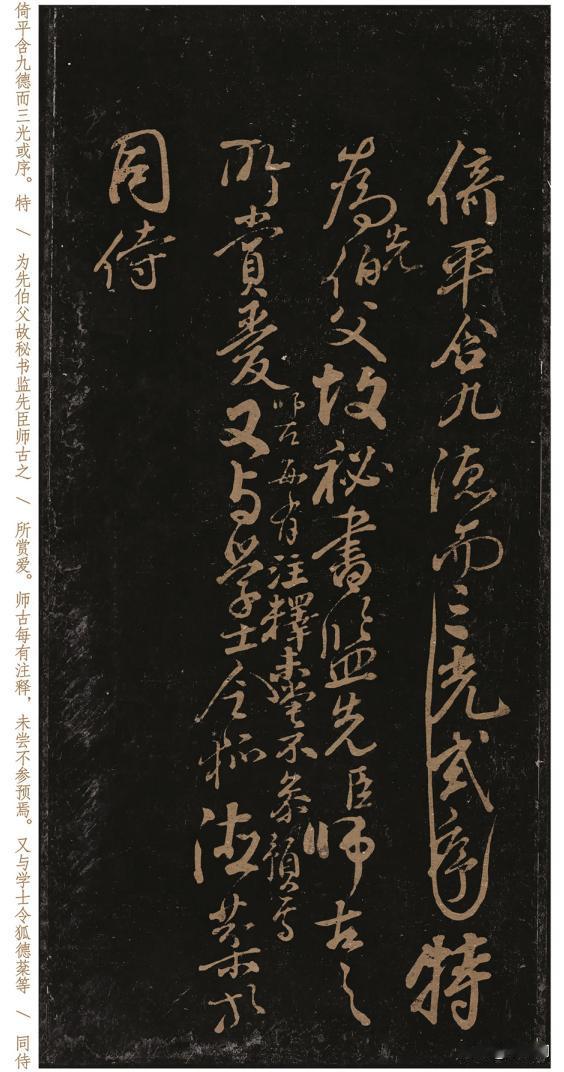 倚平含九德而三光式序特
為先伯父故祕書監先臣師古之
師古每有注釋未嘗不參預焉
所賞愛又与學士令狐德棻等
同侍
倚平含九德而三光或序。 特 / 为先伯父故秘书监先臣师古之 / 所赏爱。师古每有注释，未尝不参预焉。又与学士令狐德棻等 / 同侍